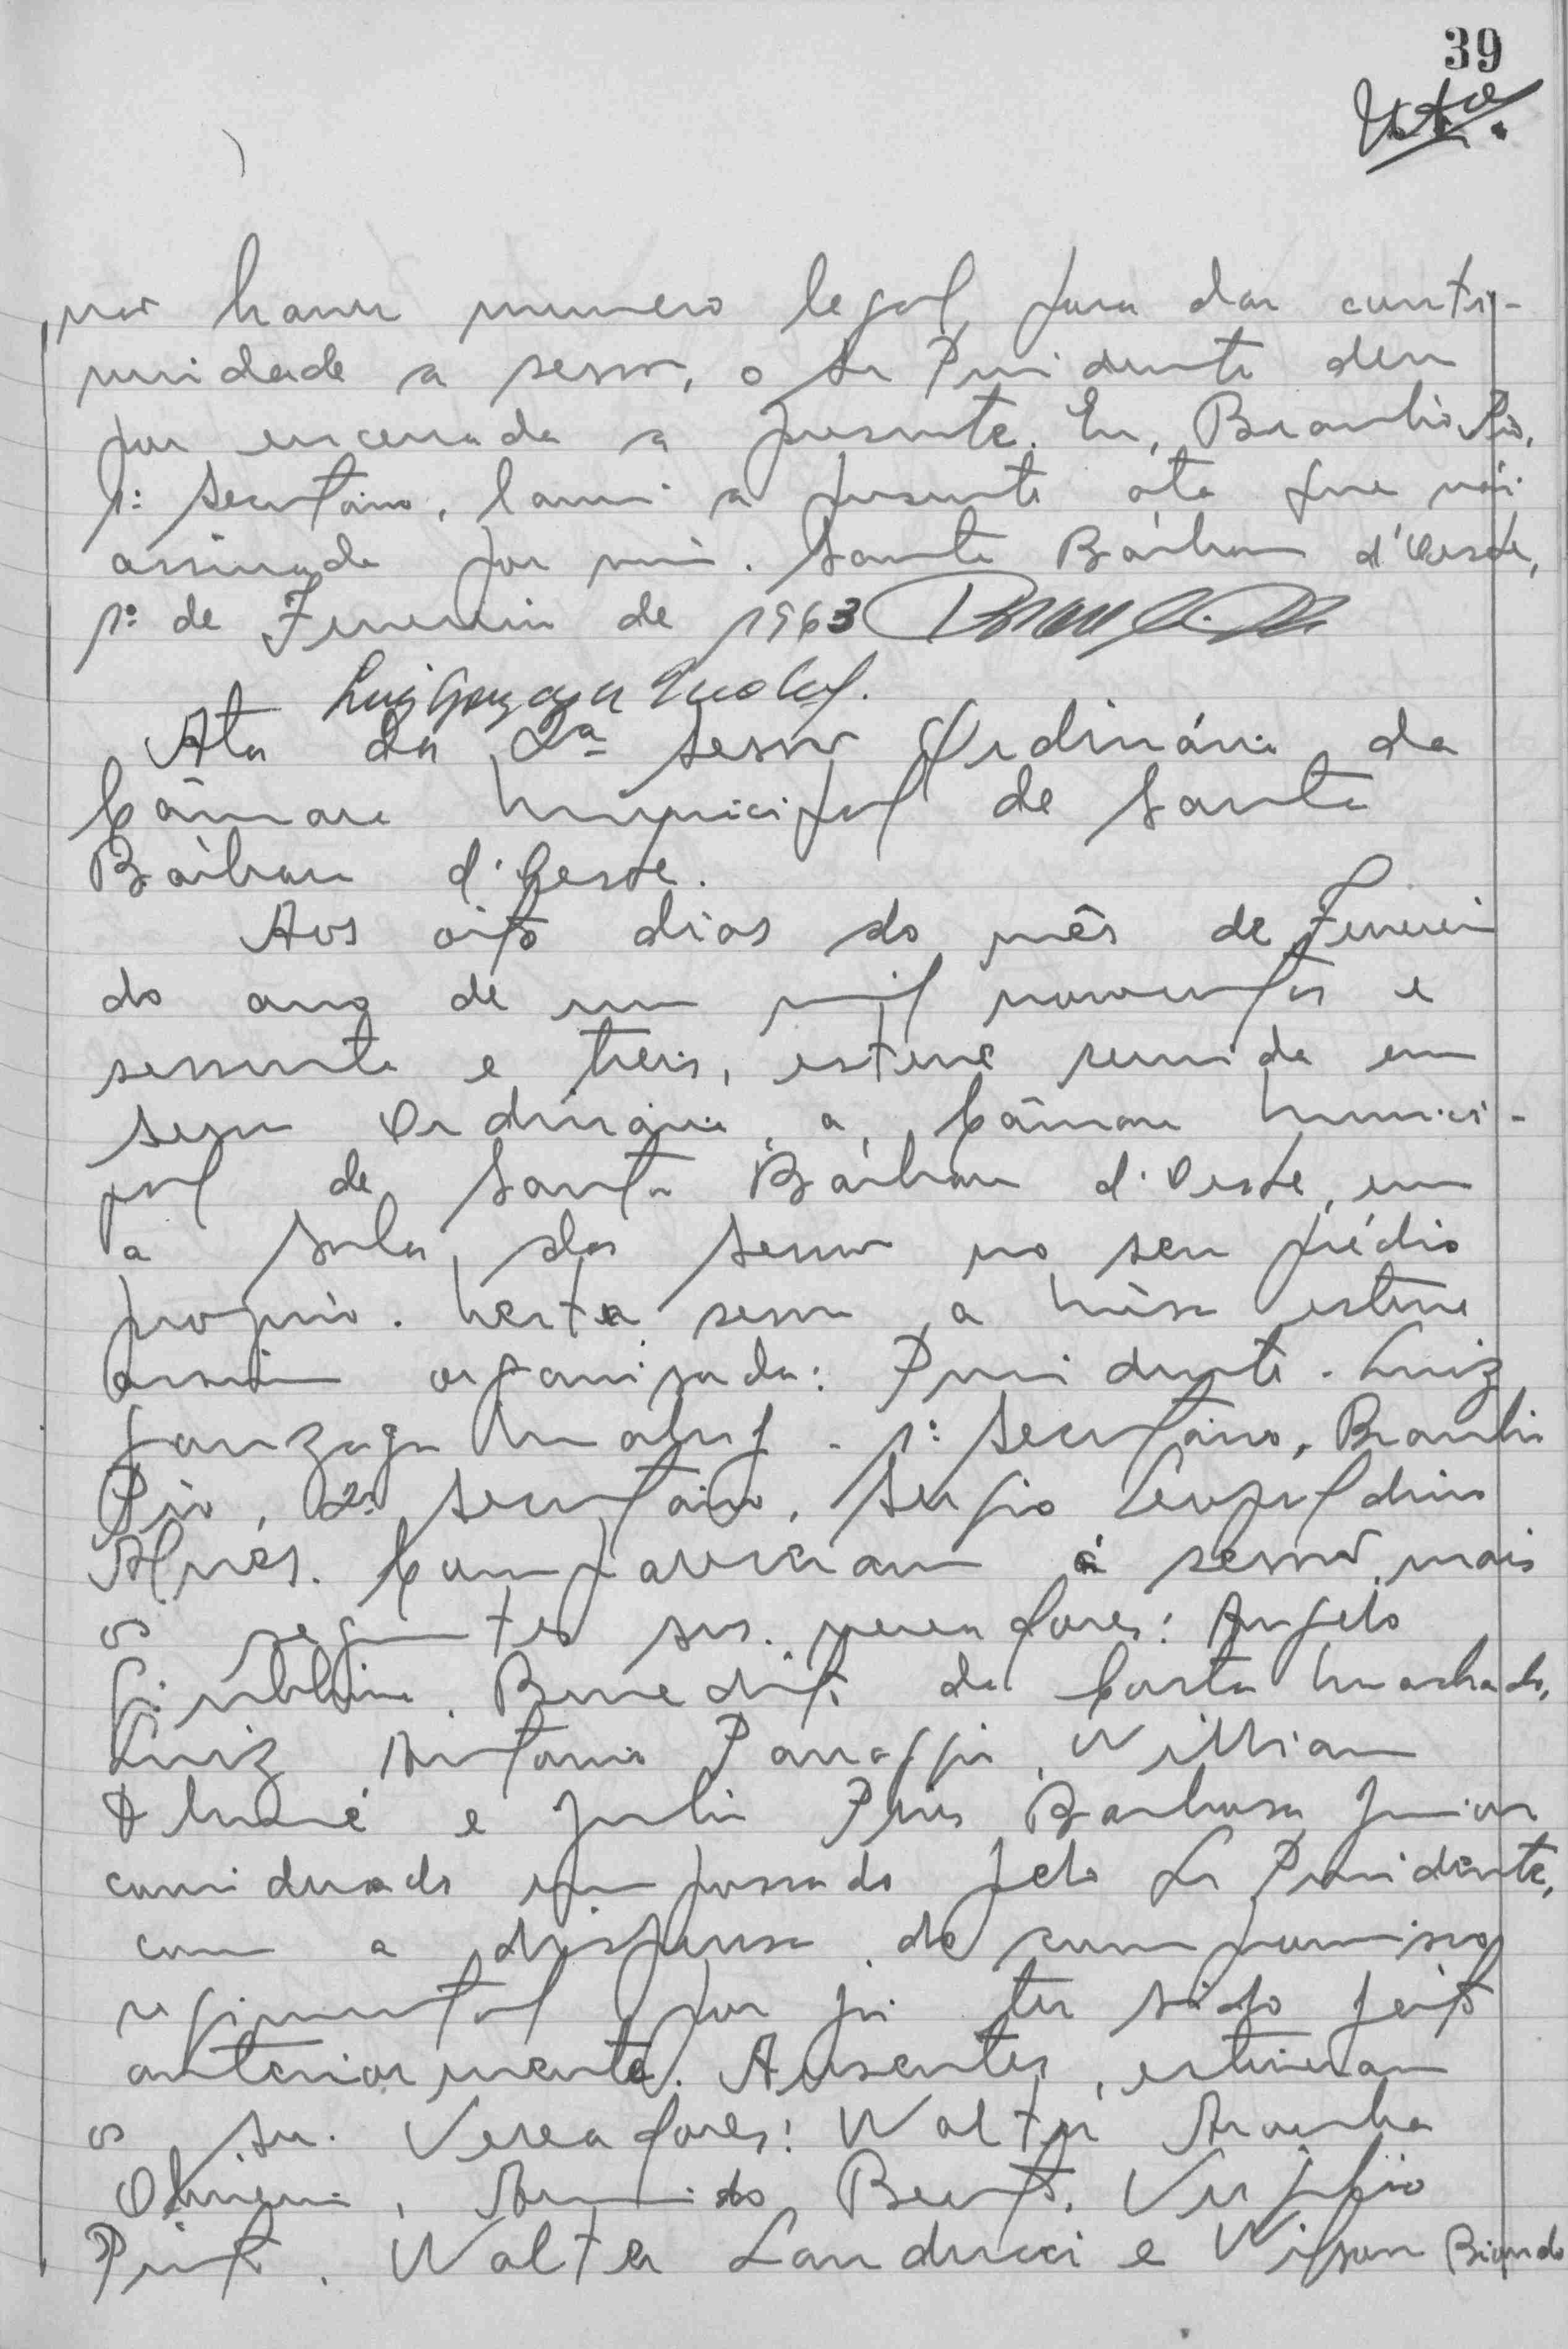 39
não haver numero legal para dar conti-
nuidade a sessão, o Sr Presidente deu
por encerrada a presente. Eu, Braulio Pio,
1º Secretário, lavrei a presente ata que vai
assinada por mim. Santa Bárbara d'Oeste,
1º de Fevereiro de 1963
Luiz Gonzaga Maluf.
Ata da 2ª sessão Ordinária da
Câmara Municipal de Santa
Bárbara d'Oeste.
Aos oito dias do mês de Fevereiro
do ano de um mil novecentos e
sessenta e treis, esteve reunida em
sessão Ordinária, a Câmara Munici-
pal de Santa Bárbara d'Oeste, em
a sala das sessão no seu prédio
proprio. Nesta sessão a mêsa esteve
assim organisada: Presidente - Luiz
Gonzaga Maluf - 1º Secretário, Braulio
Pio, 2º Secretário, Sergio Leopoldino
Alves. Compareceram á sessão mais
os seguintes srs. vereadores: Angelo
Giubbina, Benedito da Costa Machado,
Luiz Antonio Panaggio, William
e Julio Pires Barbosa Junior
considerado empossado pelo Sr Presidente,
com a dispensa do compromisso
regimental por já ter sido feito
anteriormente. Ausentes, estiveram
os Srs. Vereadores: Walter Aranha
Oliveira, Armindo Bento, Virgilio
Pinto, Walter Landucci e Wilson Biondo